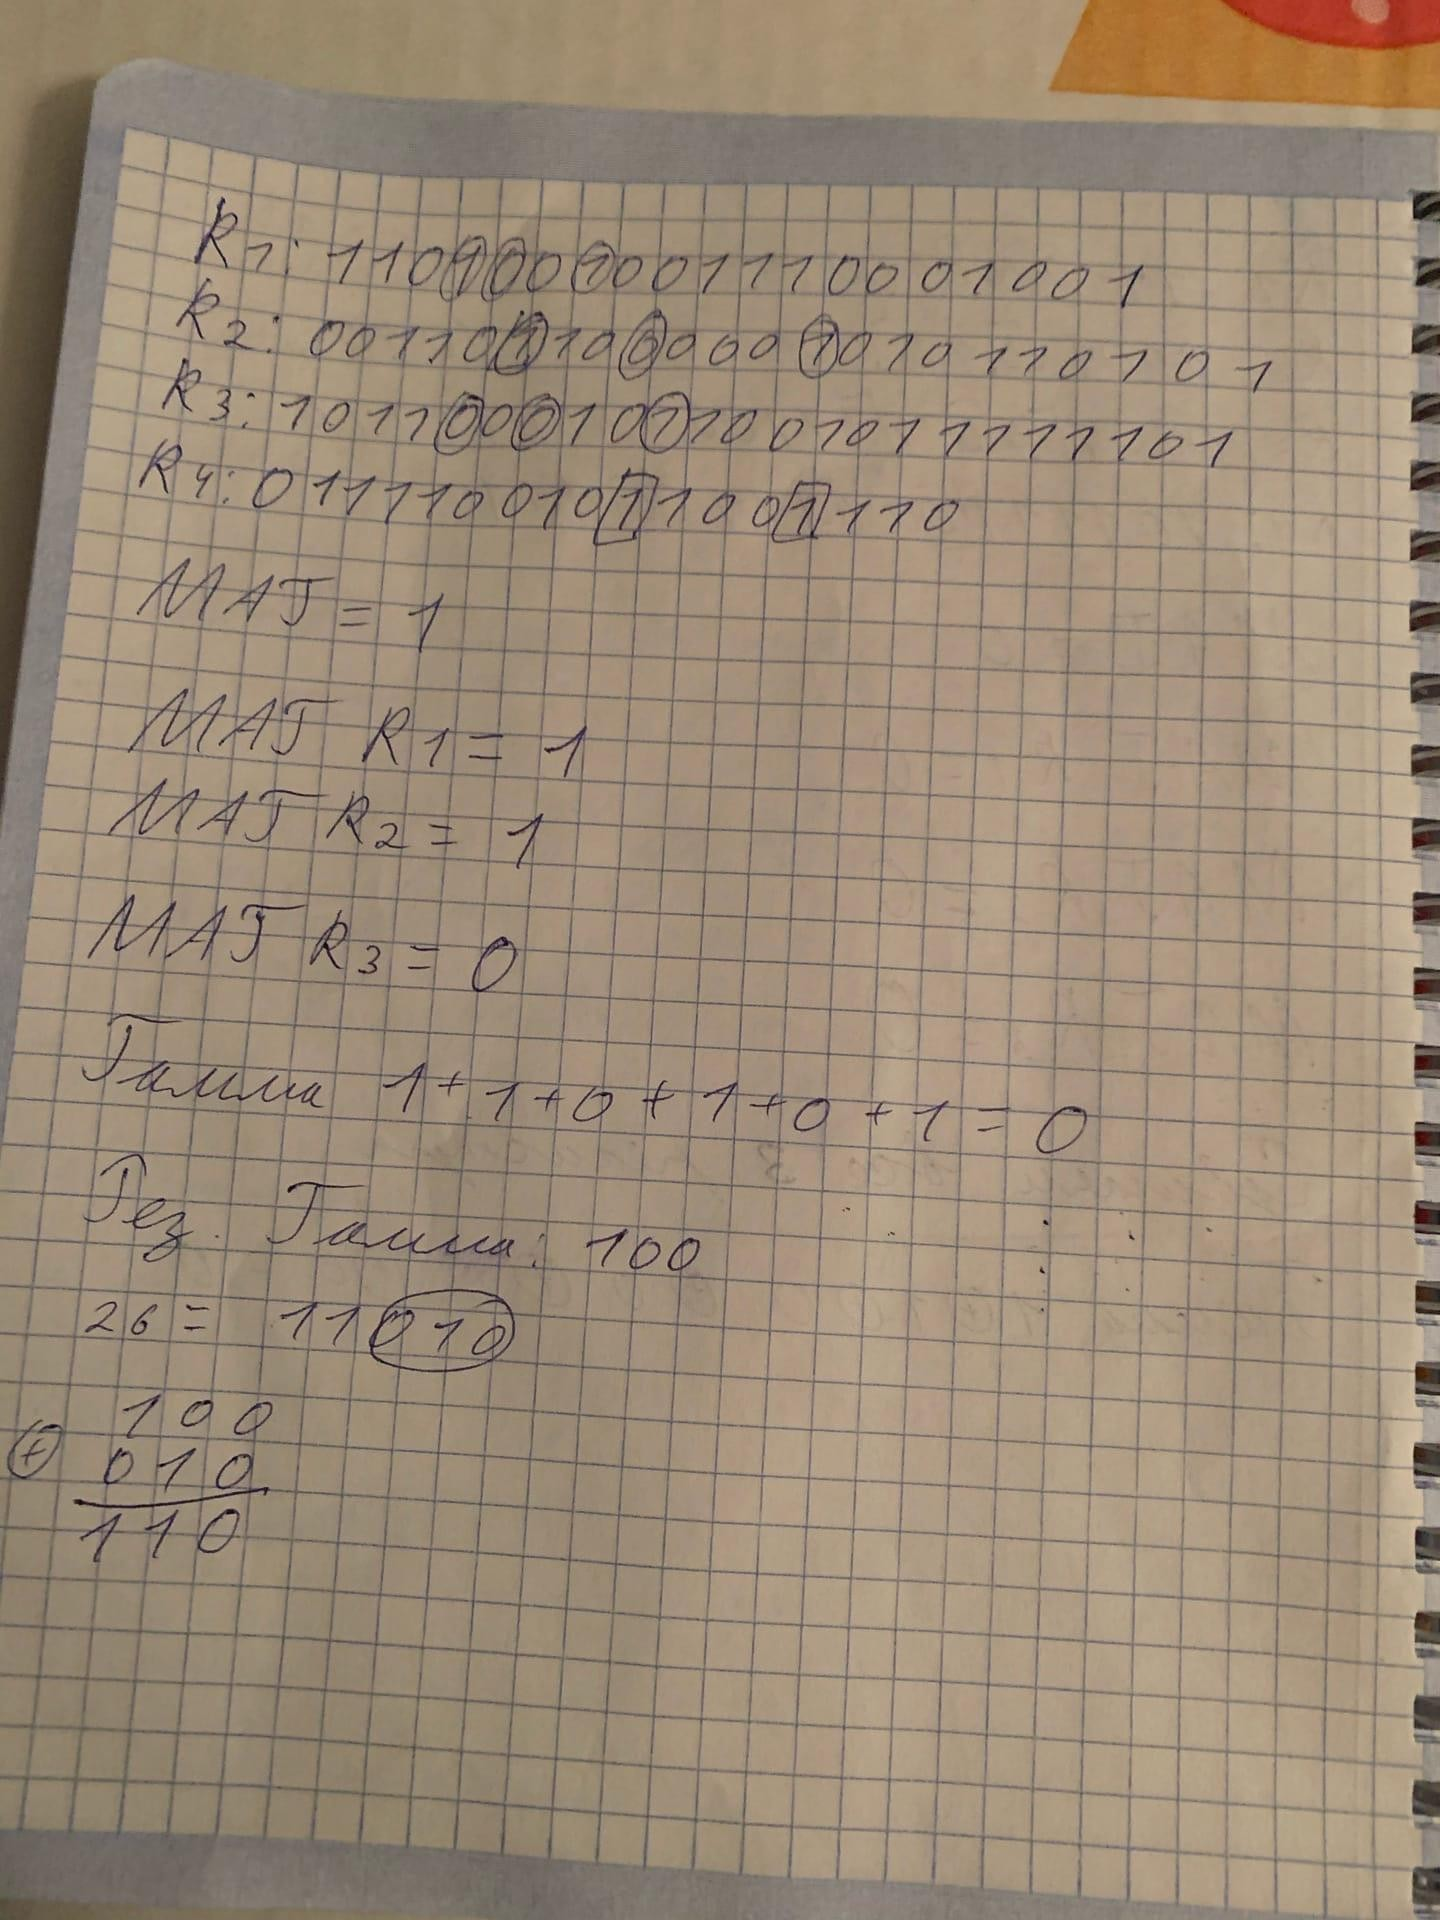 R1: 11010001001110001001
R2: 0011011100000010101101 01
R3: 10110001011001011111101
R4: 01111001011001110
МАЈ = 1
МАЈ R1 = 1
МАЈ R2 = 1
МАЈ R3 = 0
Гамма 1+1+0+1+0+1=0
Рез. Гамма: 100
26 = 11010
100
⊕ 010
110